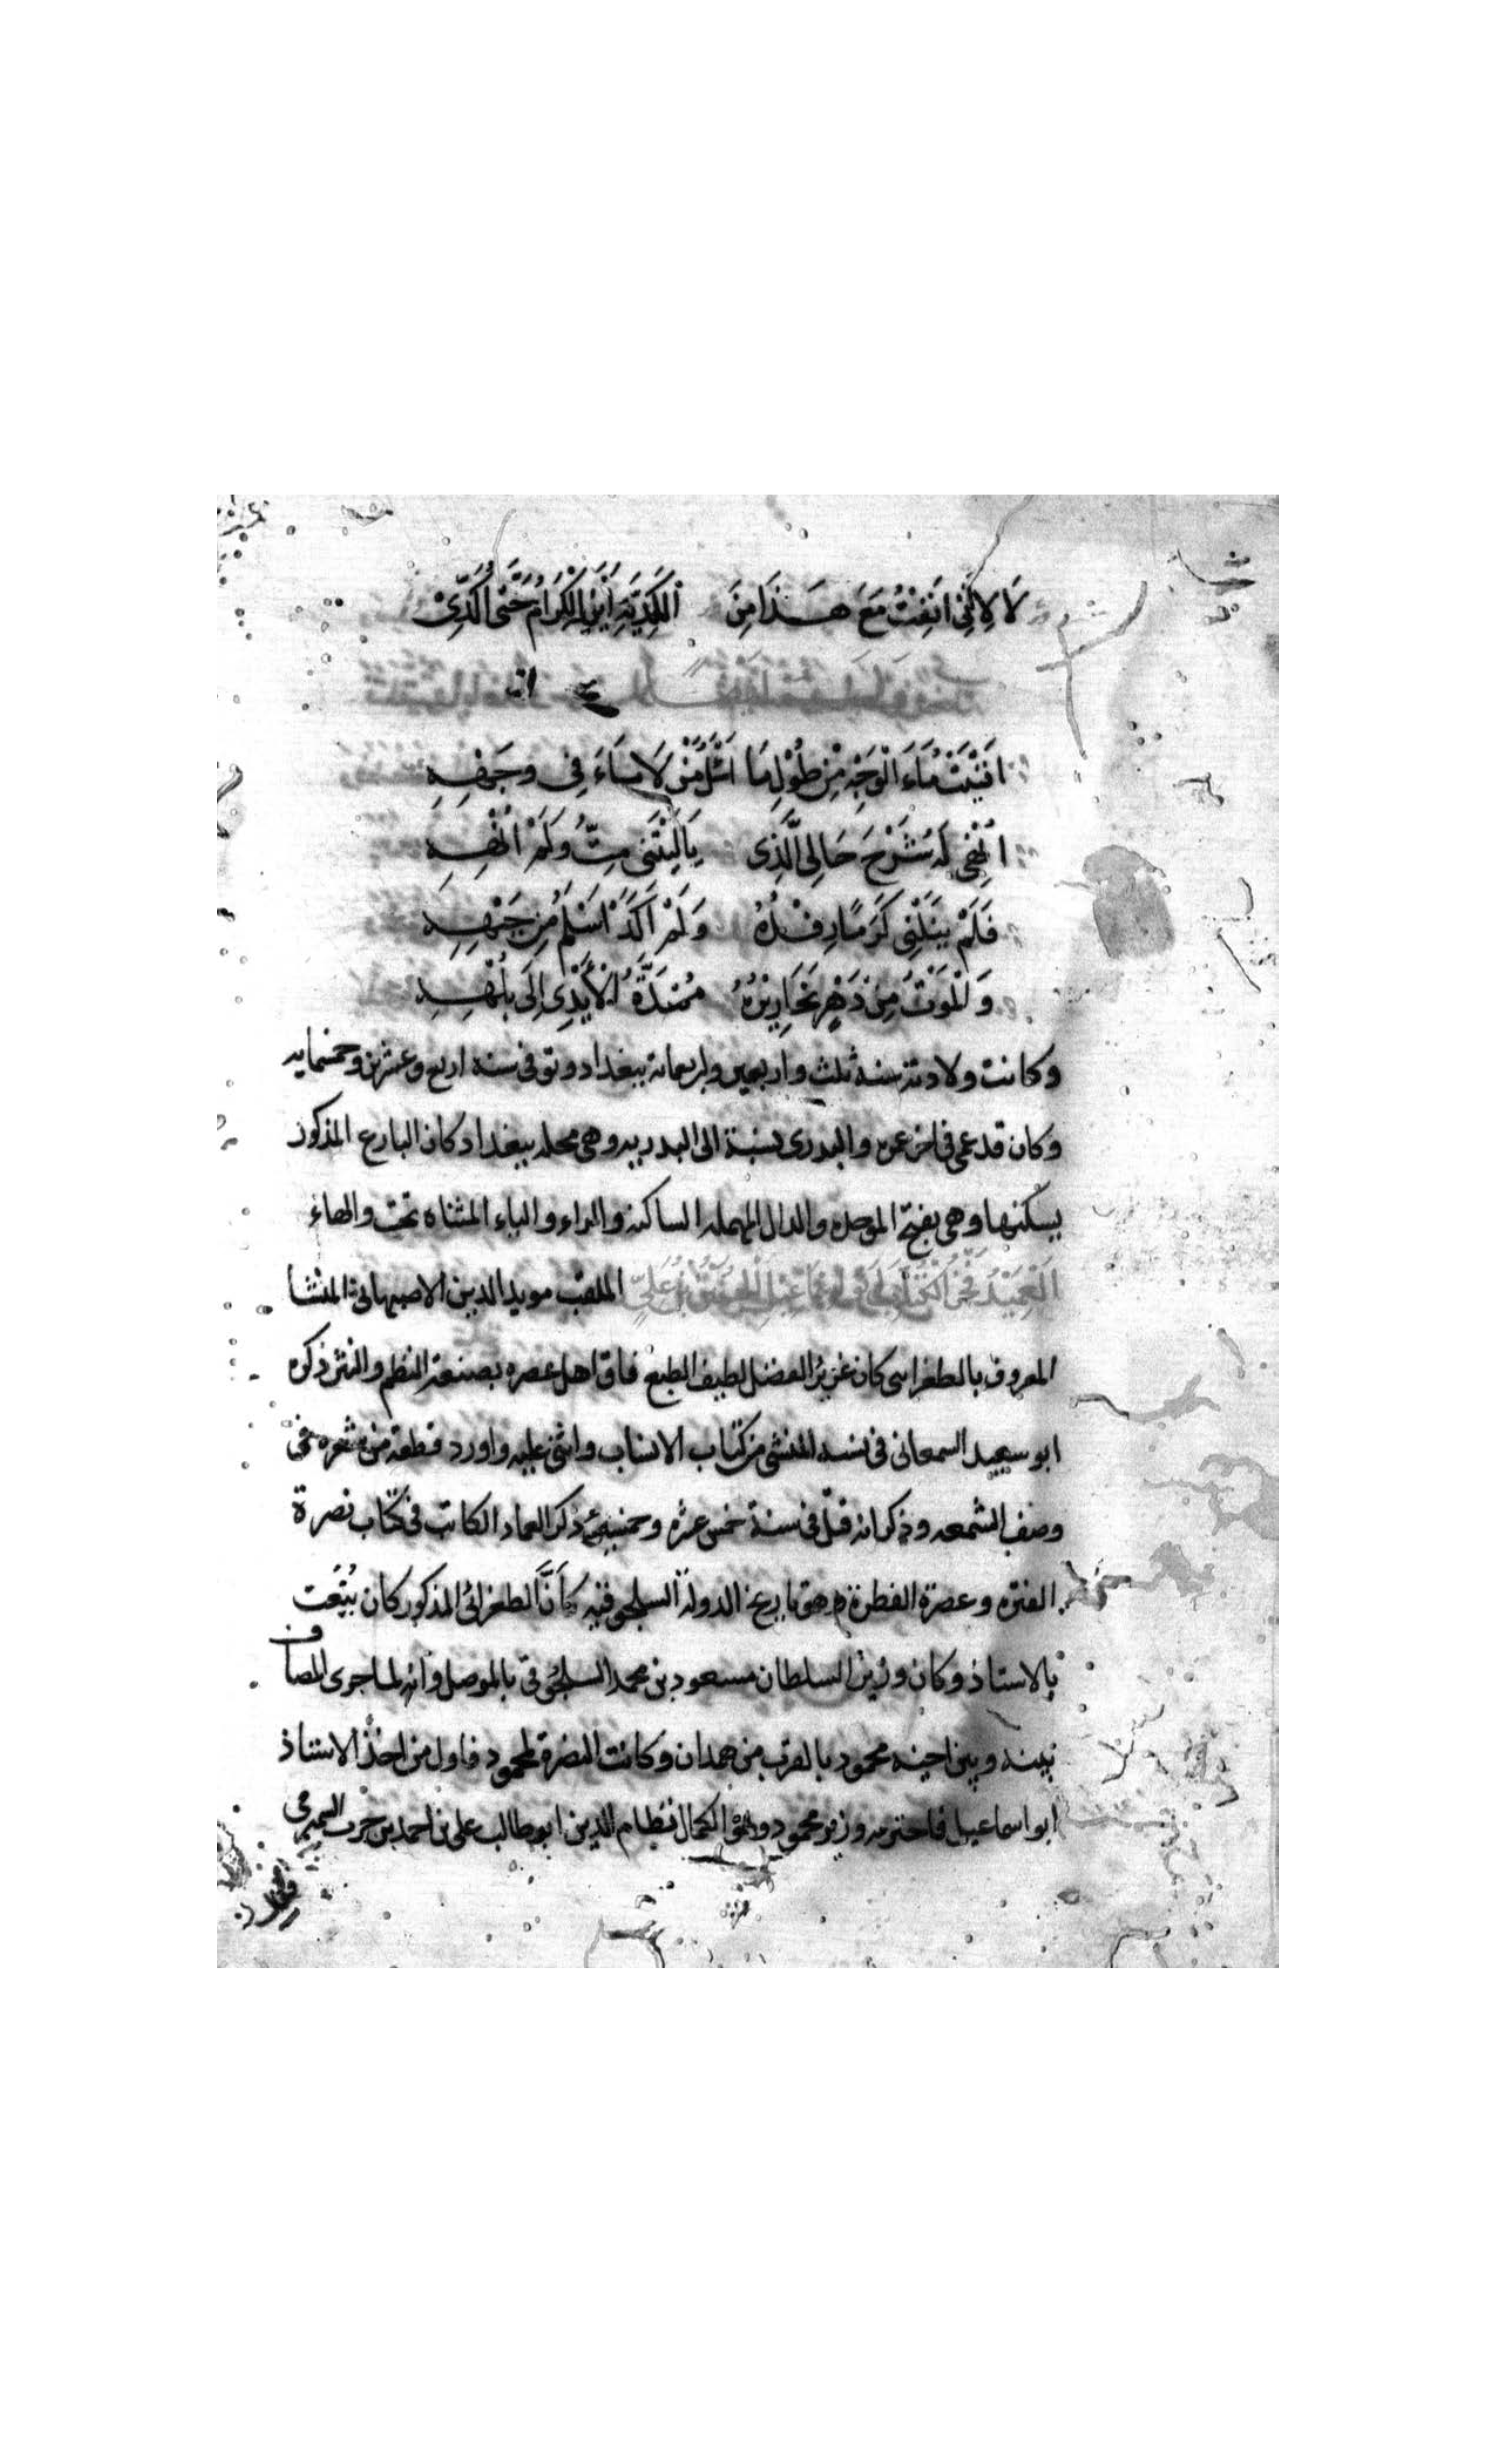 لَا لِاَنِّي اَنِفْتُ مَعَ هَذَا مِنَ الْكُدْيَةِ اَيْنَ الْكِرَامُ حَتَّى اُكَدِّيْ
اَفْنَيْتُ مَاءَ الْوَجْهِ مِنْ طُوْلِ مَا اَسْأَلُ مَنْ لَا مَاءَ فِي وَجْهِهِ
اُنْهِي لَهُ شَرْحَ حَالِي الَّذِي يَالَيْتَنِي مِتُّ وَلَمْ اُنْهِهِ
فَلَمْ يَنَلْنِي كَرَمًا رِفْدُهُ وَلَمْ اَكَدْ اَسْلَمُ مِنْ جَبْهِهِ
وَالْمَوْتُ مِنْ دَهْرٍ نَحَارِيْرُهُ مُمْتَدَّةُ الْأَيْدِي اِلَى بُلْهِهِ
وكانت ولادته سنه ثلث واربعين واربعمائة ببغداد وتوفى سنه اربع وعشرين وخمسمايه
وكان قد عمى فى اخر عمره والبدرى نسبة الى البدريه وهى محله ببغداد كان البارع المذكور
يسكنها وهى بفتح الموحده والدال المهمله الساكنه والراء والياء المثناه تحت والهاء
اَلْعَمِيْدُ فَخْرُ الْكُتَّابِ اَبُو اِسْمَاعِيْلَ الْحُسَيْنُ بْنُ عَلِيٍّ الملقب مويد الدين الاصبهانى المنشا
المعروف بالطغراى كان غزير الفضل لطيف الطبع فاق اهل عصره بصنعة النظم والنثر ذكره
ابو سعيد السمعانى فى نسبه المنشى من كتاب الانساب واثنى عليه واورد قطعة من شعره فى
وصف الشمعه وذكر انه قتل فى سنة خمس عشره وخمسمئة ذكر العماد الكاتب فى كتاب نصرة
الفتره وعصرة الفطرة وهو تاريخ الدولة السلجوقيه كاَنَّ الطغرائى المذكور كان يُنْعَت
بالاستاذ وكان وزير السلطان مسعود بن محمد السلجوقى بالموصل وانه لما جرى المصاف
بينه وبين اخيه محمود بالقرب من همدان وكانت النصرة لمحمود فاول من اخذ الاستاذ
ابو اسماعيل فاخبر به وزير محمود وهو الكمال نظام الدين ابو طالب على بن احمد بن حرب السميرمى